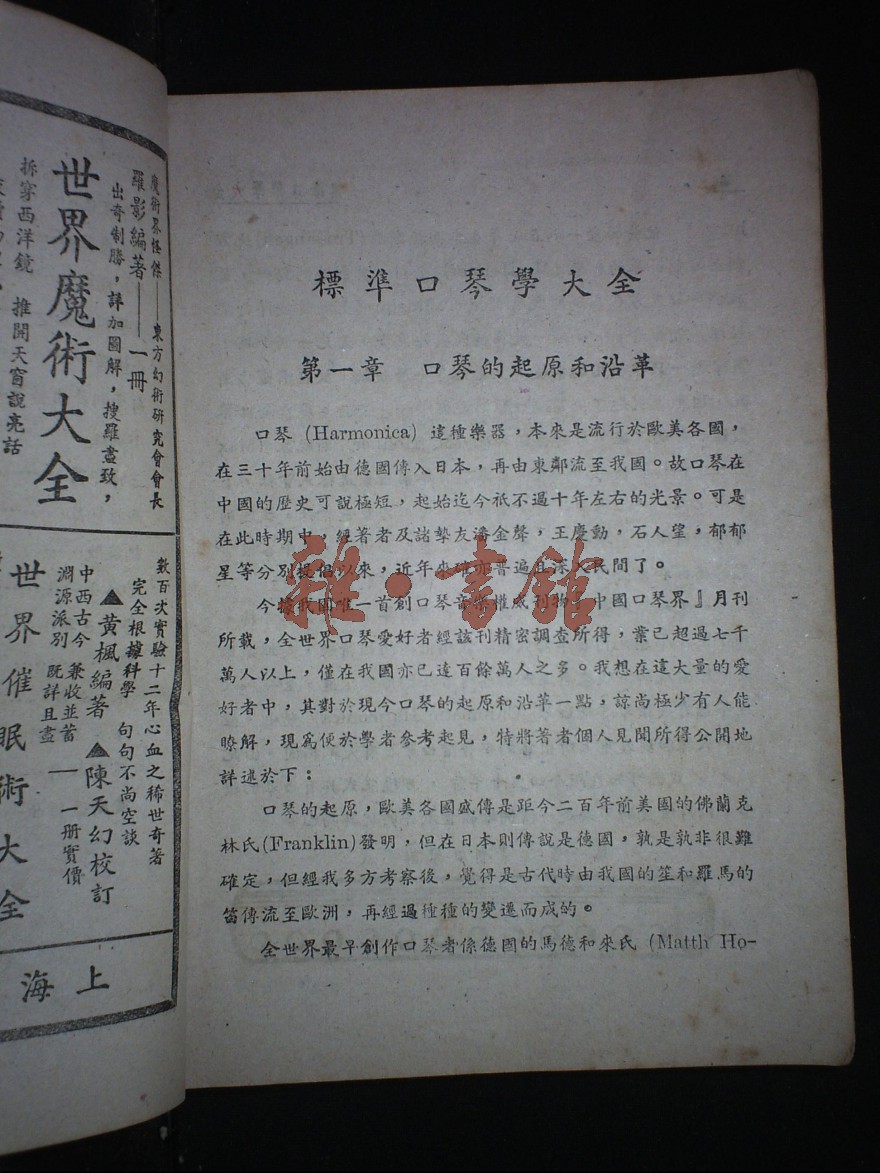 標準口琴學大全
第一章 口琴的起原和沿革
口琴 (Harmonica) 這種樂器，本來是流行於歐美各國，
在三十年前始由德國傳入日本，再由東鄰流至我國。故口琴在
中國的歷史可說極短，起始迄今祇不過十年左右的光景。可是
在此時期中，經著者及諸摯友潘金聲，王慶勳，石人望，郁郁
星等分別提倡以來，近年來確亦普遍且深入民間了。
今據我國唯一首創口琴音樂權威刊物『中國口琴界』月刊
所載，全世界口琴愛好者經該刊精密調查所得，業已超過七千
萬人以上，僅在我國亦已達百餘萬人之多。我想在這大量的愛
好者中，其對於現今口琴的起原和沿革一點，諒尚極少有人能
暸解，現爲便於學者參考起見，特將著者個人見聞所得公開地
詳述於下：
口琴的起原，歐美各國盛傳是距今二百年前美國的佛蘭克
林氏(Franklin)發明，但在日本則傳說是德國，孰是孰非很難
確定，但經我多方考察後，覺得是古代時由我國的笙和羅馬的
笛傳流至歐洲，再經過種種的變遷而成的。
全世界最早創作口琴者係德國的馬德和來氏 (Matth Ho-
魔術界怪傑——東方幻術研究會會長
羅影編著——一冊
出奇制勝，詳加圖解，搜羅盡致，
世界魔術大全
拆穿西洋鏡 推開天窗說亮話
數百次實驗十二年心血之稀世奇著
完全根據科學 句句不尚空談
▲黃楓編著 ▲陳天幻校訂
中西古今 兼收並蓄
淵源派別 既詳且盡 —— 一册實價
世界催眠術大全
上海
雜·書館